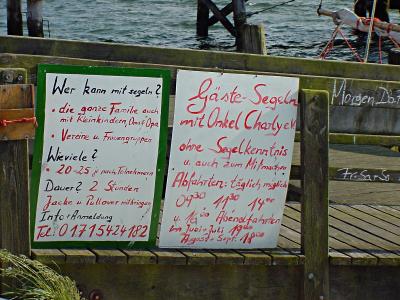 Wer kann mit segeln?
• die ganze Familie auch
mit Kleinkindern, Oma, Opa
• Vereine u. Frauengruppen
Wieviele?
• 20-25 je nach Teilnehmern
Dauer? 2 Stunden
Jacke u. Pullover mitbringen
Info + Anmeldung
Tel. 01715424182
Gäste-Segeln
mit Onkel Charly e.V.
ohne Segelkenntnis
u. auch zum Mitmachen
Abfahrten: täglich möglich
09³⁰ 11³⁰ 14⁰⁰
Abendfahrten
im Juni + Juli 19⁰⁰
August + Sept. 18⁰⁰
Morgen